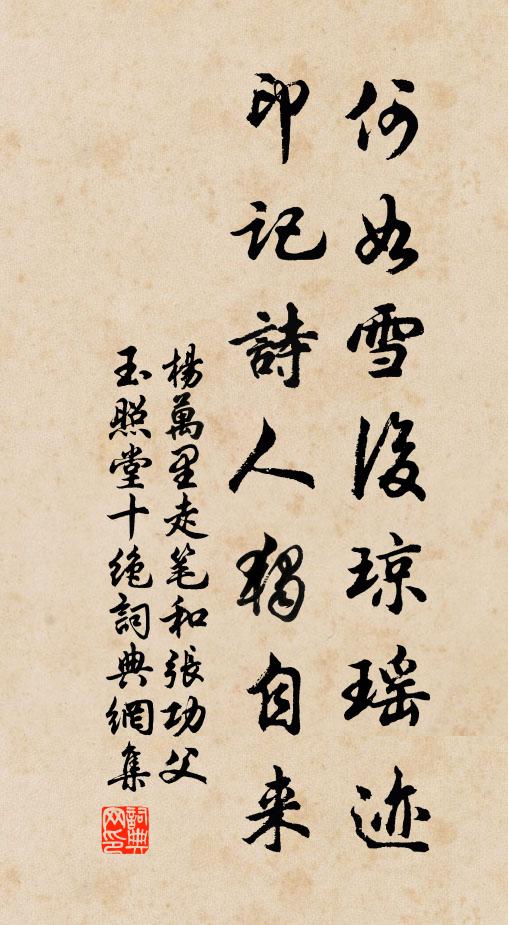 何如雪後琼瑶迹
印記詩人獨自来
楊萬里走笔和張功父
玉照堂十絶詞典網集
詞典网印